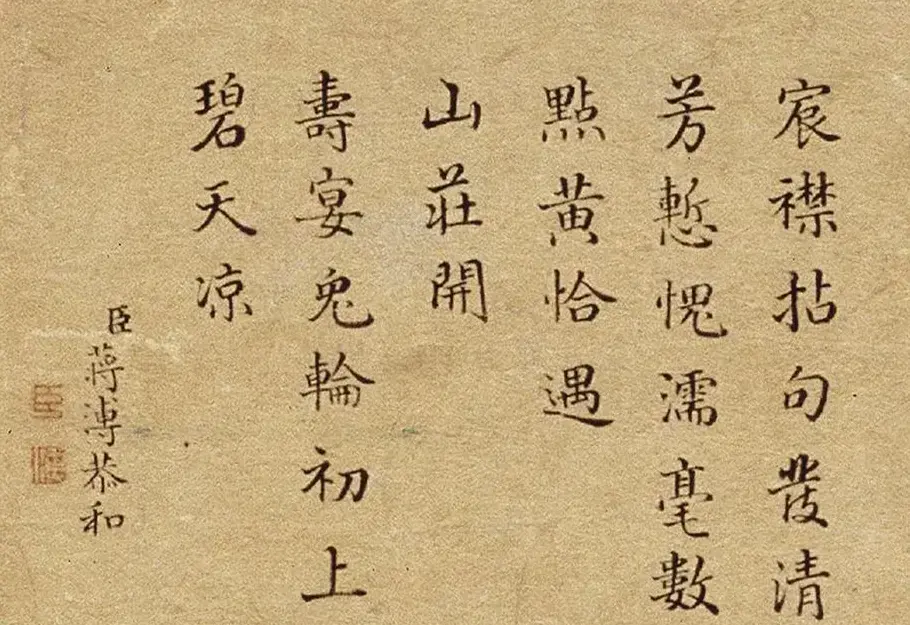 宸襟拈句發清
芳慙愧濡毫數
點黃恰遇
山莊開
壽宴兔輪初上
碧天凉
臣蔣溥恭和
臣溥